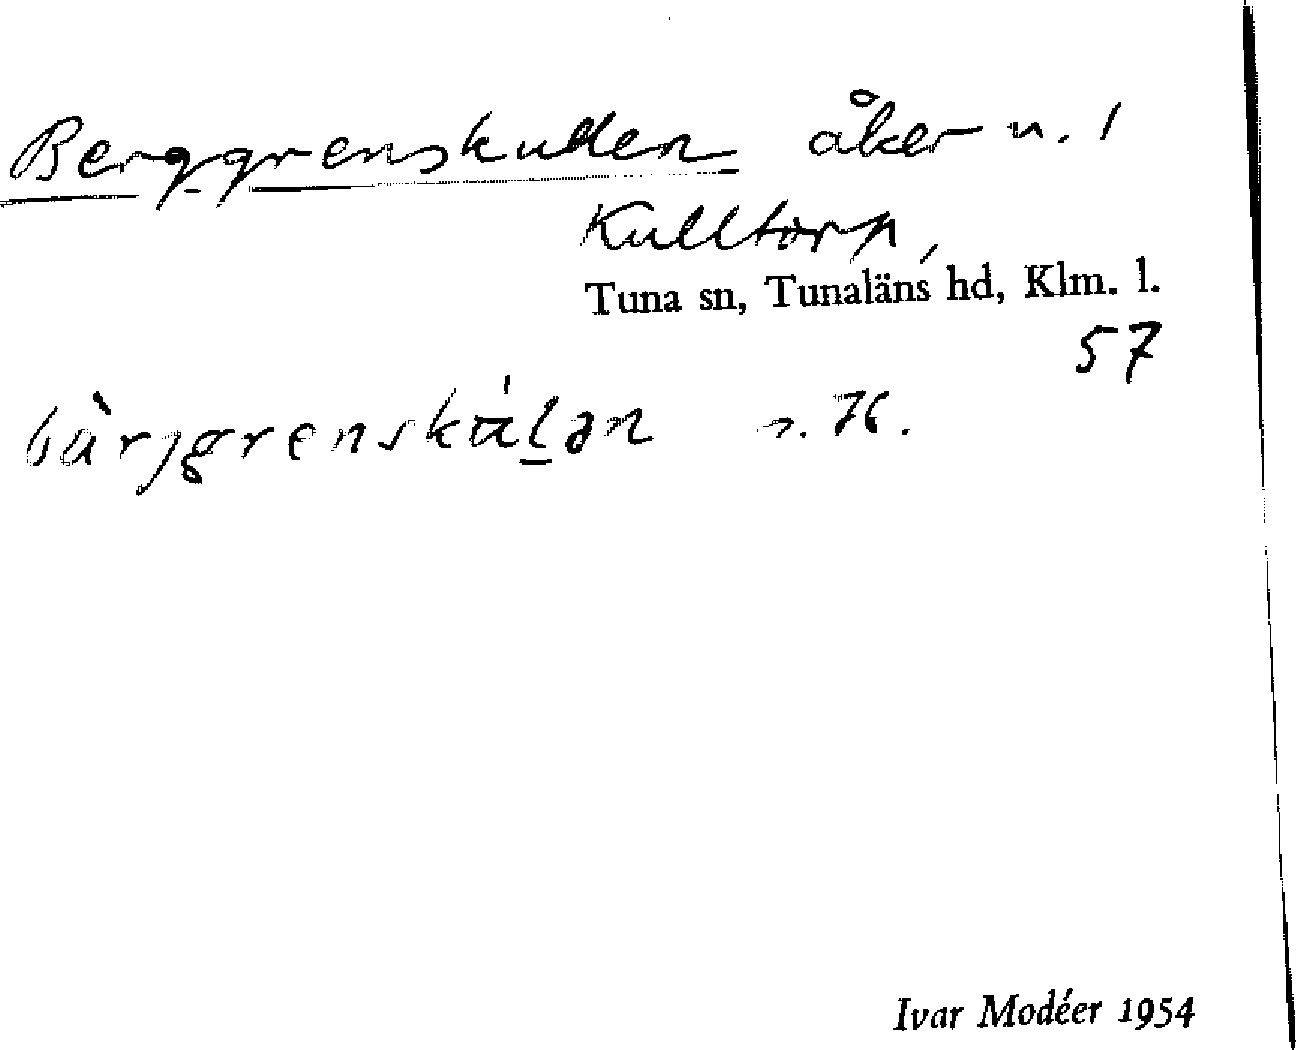 Berggrenskullen åker n. 1
Kulltorp,
Tuna sn, Tunaläns hd, Klm. l.
57
bàrjgrenskúlən s. 76.
Ivar Modéer 1954